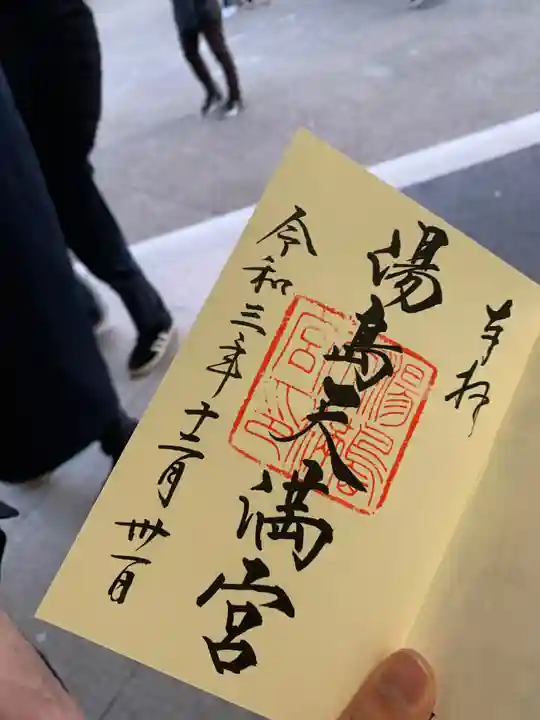 奉拝
湯島天満宮
令和三年十二月卅一日